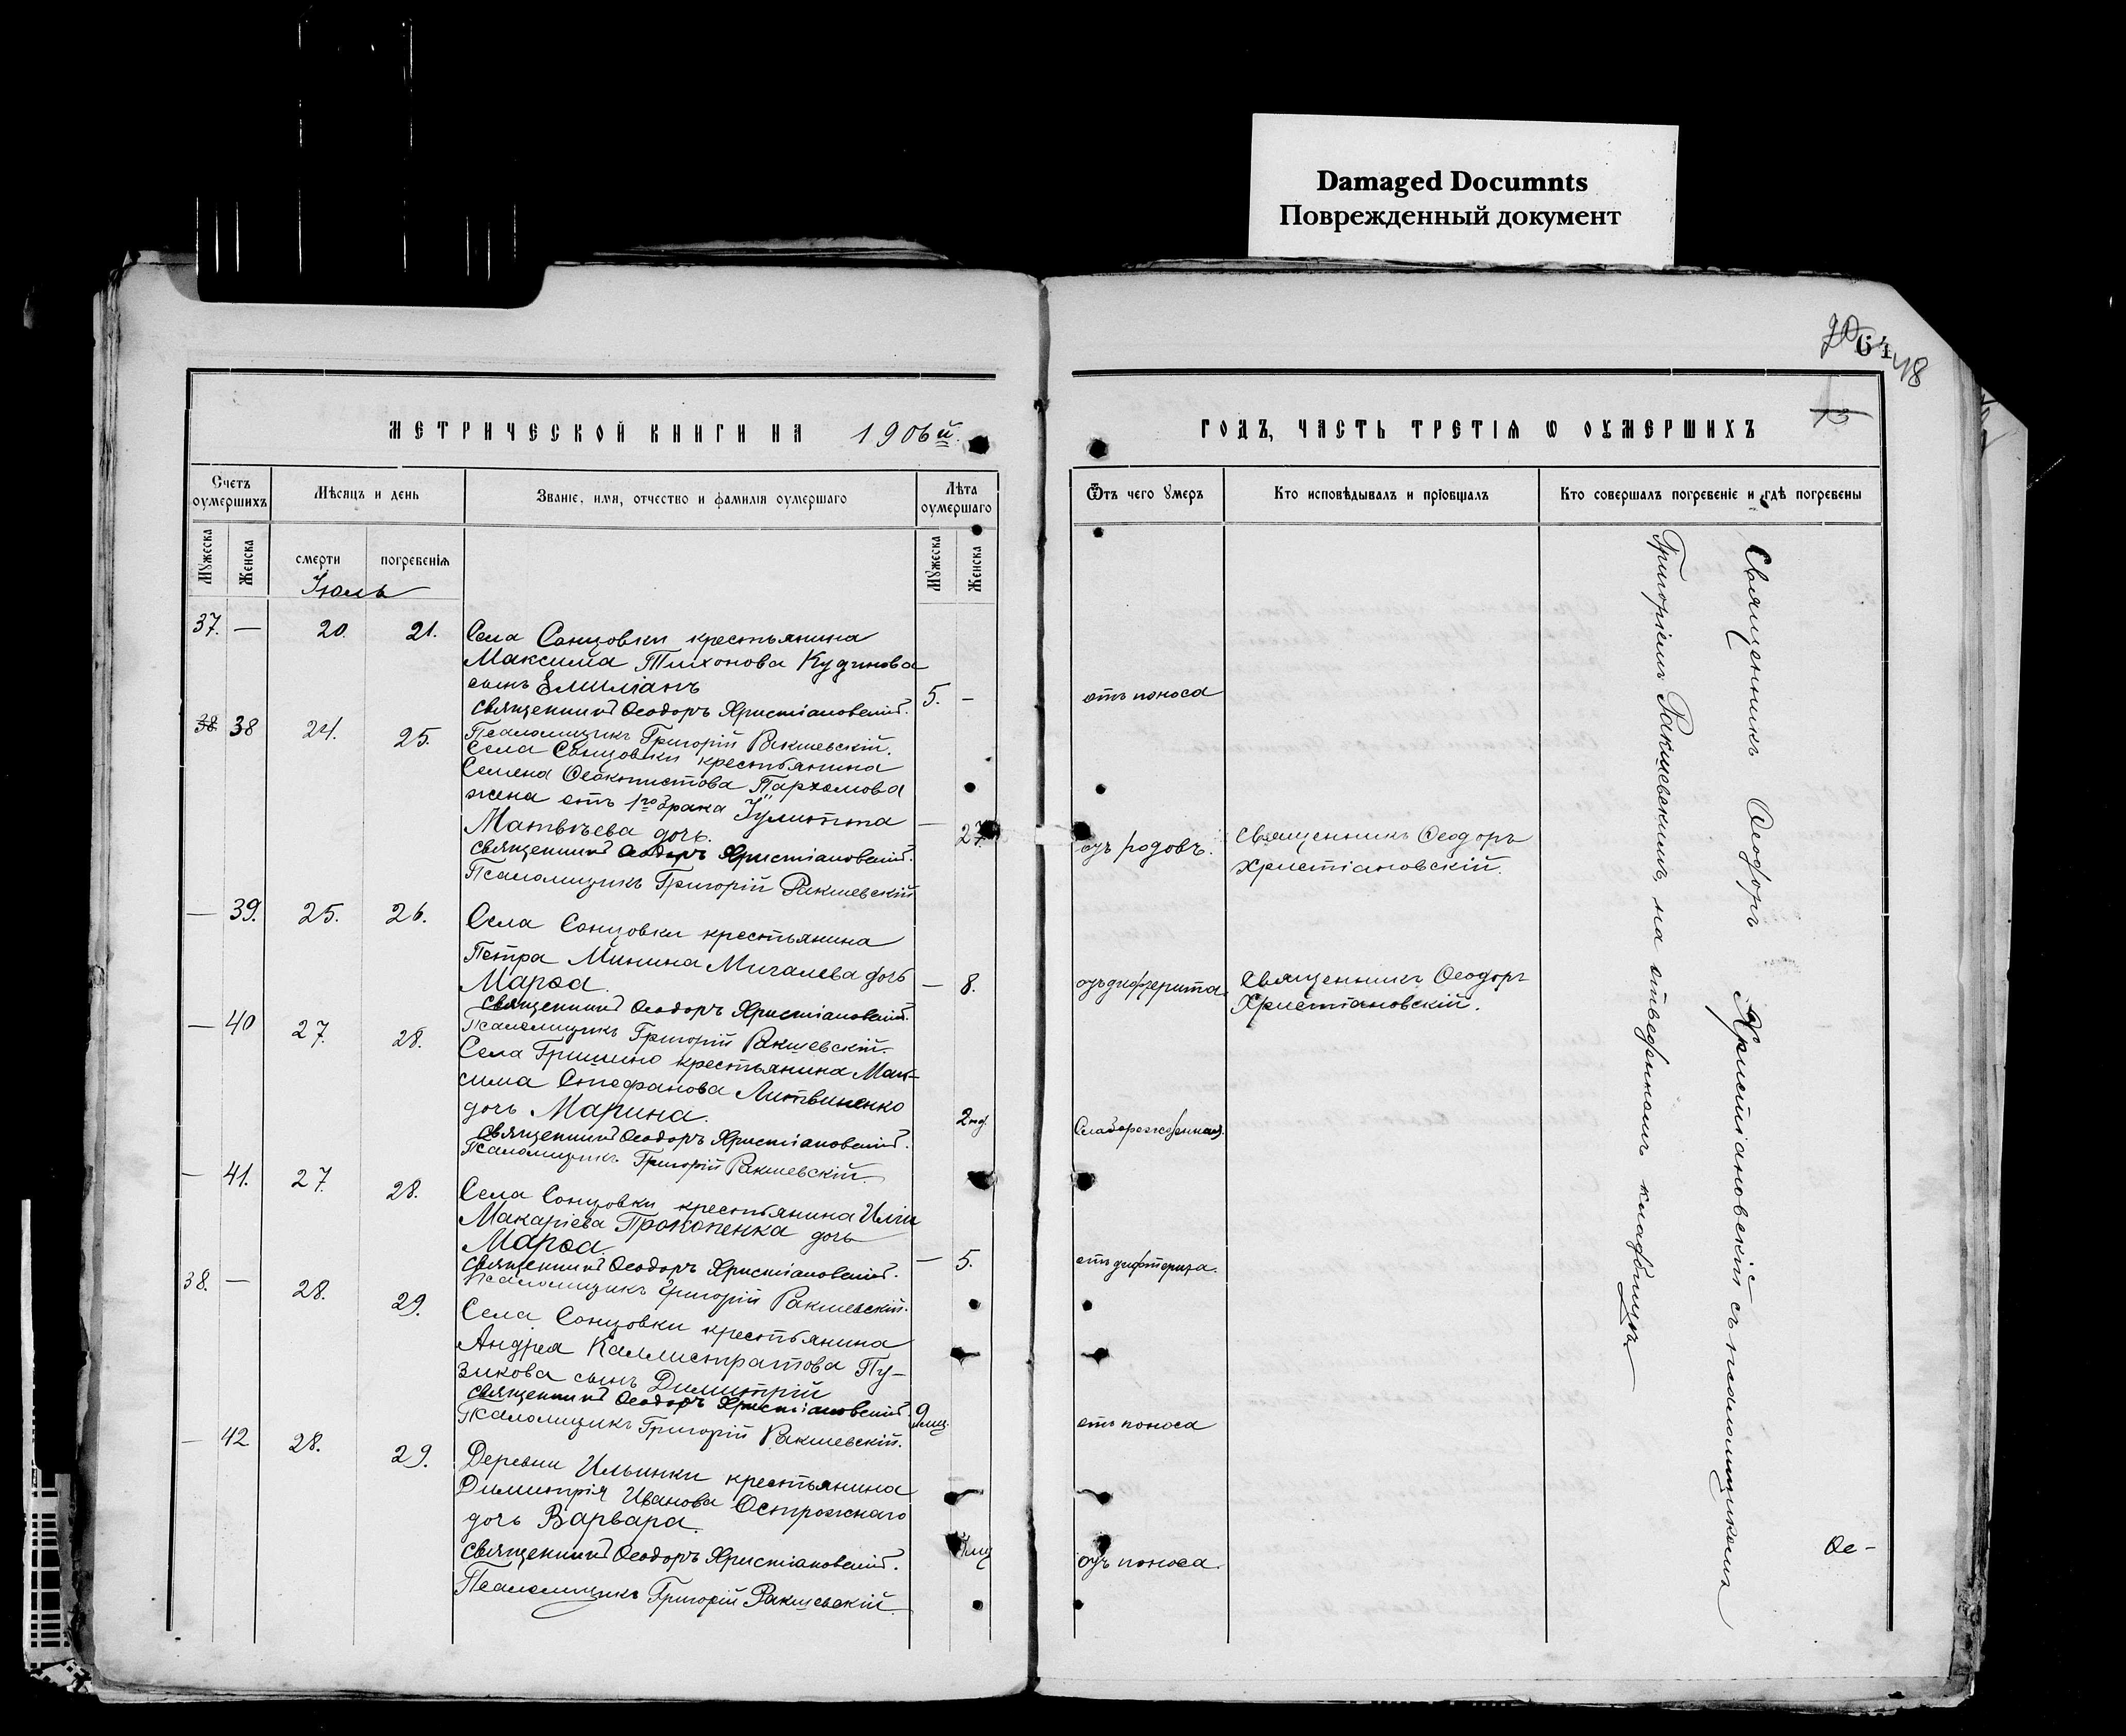 Damaged Documnts
Поврежденный документ
64
48
МЕТРИЧЕСКОЙ КНИГИ НА 1906й.
ГОДЪ, ЧАСТЬ ТРЕТІѦ Ѡ ОУМЕРШИХЪ
Счетъ оумершихъ
Мѣсяцъ и день
Званіе, имя, отчество и фамилія оумершаго
Лѣта оумершаго
Ѿтъ чего умеръ
Кто исповѣдывалъ и пріобщалъ
Кто совершалъ погребеніе и гдѣ погребены
Мужеска
Женска
смерти
погребенія
Мужеска
Женска
Іюль
37. — 20. 21. Села Сонцовки крестьянина
Максима Тихонова Кудинова
сынъ Емиліанъ 5. — отъ поноса
Священникъ Ѳеодоръ Христіановскій.
Псаломщикъ Григорій Ракшевскій.
38 38 24. 25. Села Сонцовки крестьянина
Семена Ѳеоктистова Пархомова
жена отъ 1го брака Іулитта
Матвѣева дочь. — 27. отъ родовъ. Священникъ Ѳеодоръ
Христіановскій.
Священникъ Ѳеодоръ Христіановскій.
Псаломщикъ Григорій Ракшевскій
— 39. 25. 26. Села Сонцовки крестьянина
Петра Минина Мигалева дочь
Марѳа. — 8. отъ дифтерита. Священникъ Ѳеодоръ
Христіановскій.
Священникъ Ѳеодоръ Христіановскій.
Псаломщикъ Григорій Ракшевскій.
— 40 27. 28. Села Гришино крестьянина Мак-
сима Стефанова Литвиненко
дочь Марина. 2 нед. Слаборожденная.
Священникъ Ѳеодоръ Христіановскій.
Псаломщикъ Григорій Ракшевскій.
— 41. 27. 28. Села Сонцовки крестьянина Иліи
Макаріева Прокопенка дочь
Марѳа. — 5. отъ дифтерита.
Священникъ Ѳеодоръ Христіановскій.
Псаломщикъ Григорій Ракшевскій.
38. — 28. 29. Села Сонцовки крестьянина
Андрея Каллистратова Пу-
зикова сынъ Димитрій 9 мѣц. отъ поноса
Священникъ Ѳеодоръ Христіановскій.
Псаломщикъ Григорій Ракшевскій.
— 42 28. 29. Деревни Ильинки крестьянина
Димитрія Иванова Острожнаго
дочь Варвара. мц отъ поноса.
Священникъ Ѳеодоръ Христіановскій.
Псаломщикъ Григорій Ракшевскій.
Священникъ Ѳеодоръ Христіановскій съ псаломщикомъ
Григоріемъ Ракшевскимъ, на отведенномъ кладбищѣ
Ѳе-